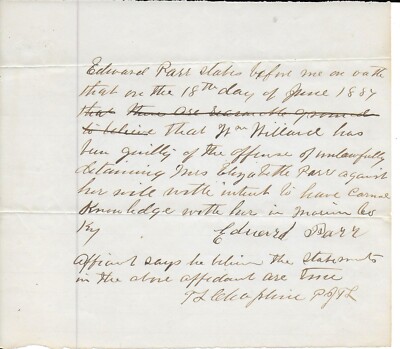 Edward Parr states before me on oath
that on the 18th day of June 1887
that there are reasonable grounds
to believe that Wm Willard has
been guilty of the offense of unlawfully
detaining Mrs Elizabeth Parr against
her will with intent to have carnal
Knowledge with her in Marion Co
Ky Edward Parr
Affiant says he believes the statements
in the above affidavit are true